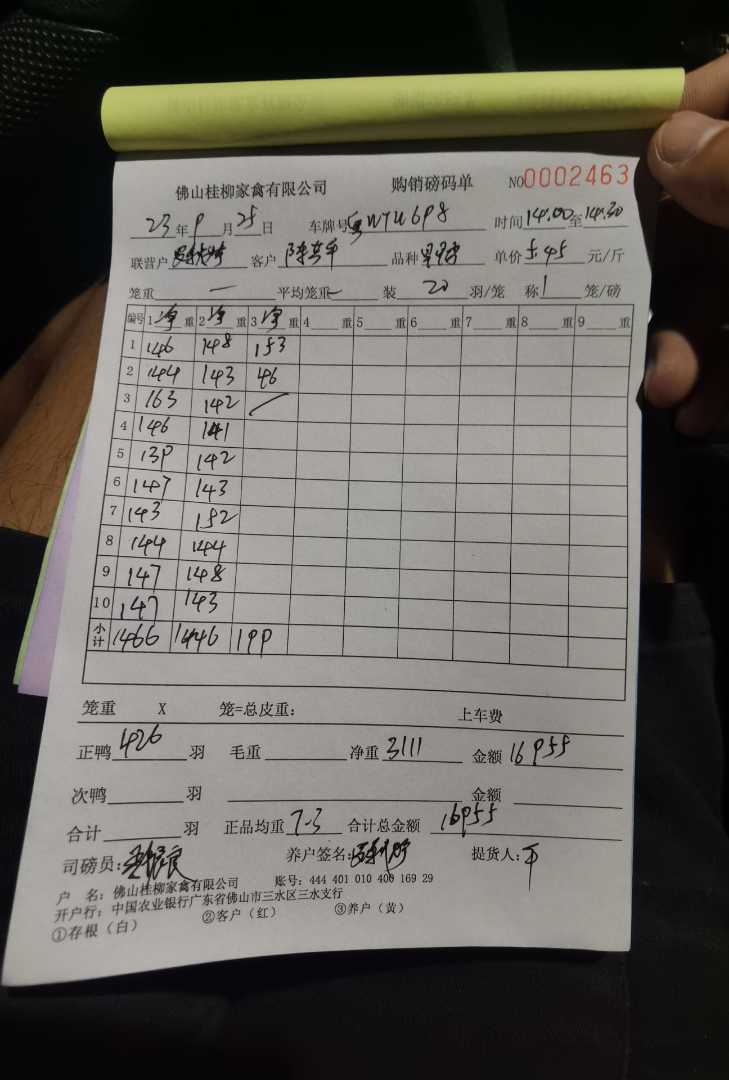 佛山桂柳家禽有限公司 购销磅码单 NO0002463
23年9月25日 车牌号粤WYU698 时间14.00至14.30
联营户 客户 品种 单价5.45元/斤
笼重一 平均笼重一 装20羽/笼 称1笼/磅
编号 1净重 2净重 3净重 4重 5重 6重 7重 8重 9重
1 146 148 153
2 144 143 46
3 163 142
4 146 141
5 139 142
6 147 143
7 143 152
8 144 144
9 147 148
10 147 143
小计 1466 1446 199
笼重 X 笼=总皮重： 上车费
正鸭426羽 毛重 净重3111 金额16955
次鸭 羽 金额
合计 羽 正品均重7-3 合计总金额16955
司磅员： 养户签名： 提货人：平
户 名：佛山桂柳家禽有限公司 账号：444 401 010 400 169 29
开户行：中国农业银行广东省佛山市三水区三水支行
①存根（白） ②客户（红） ③养户（黄）